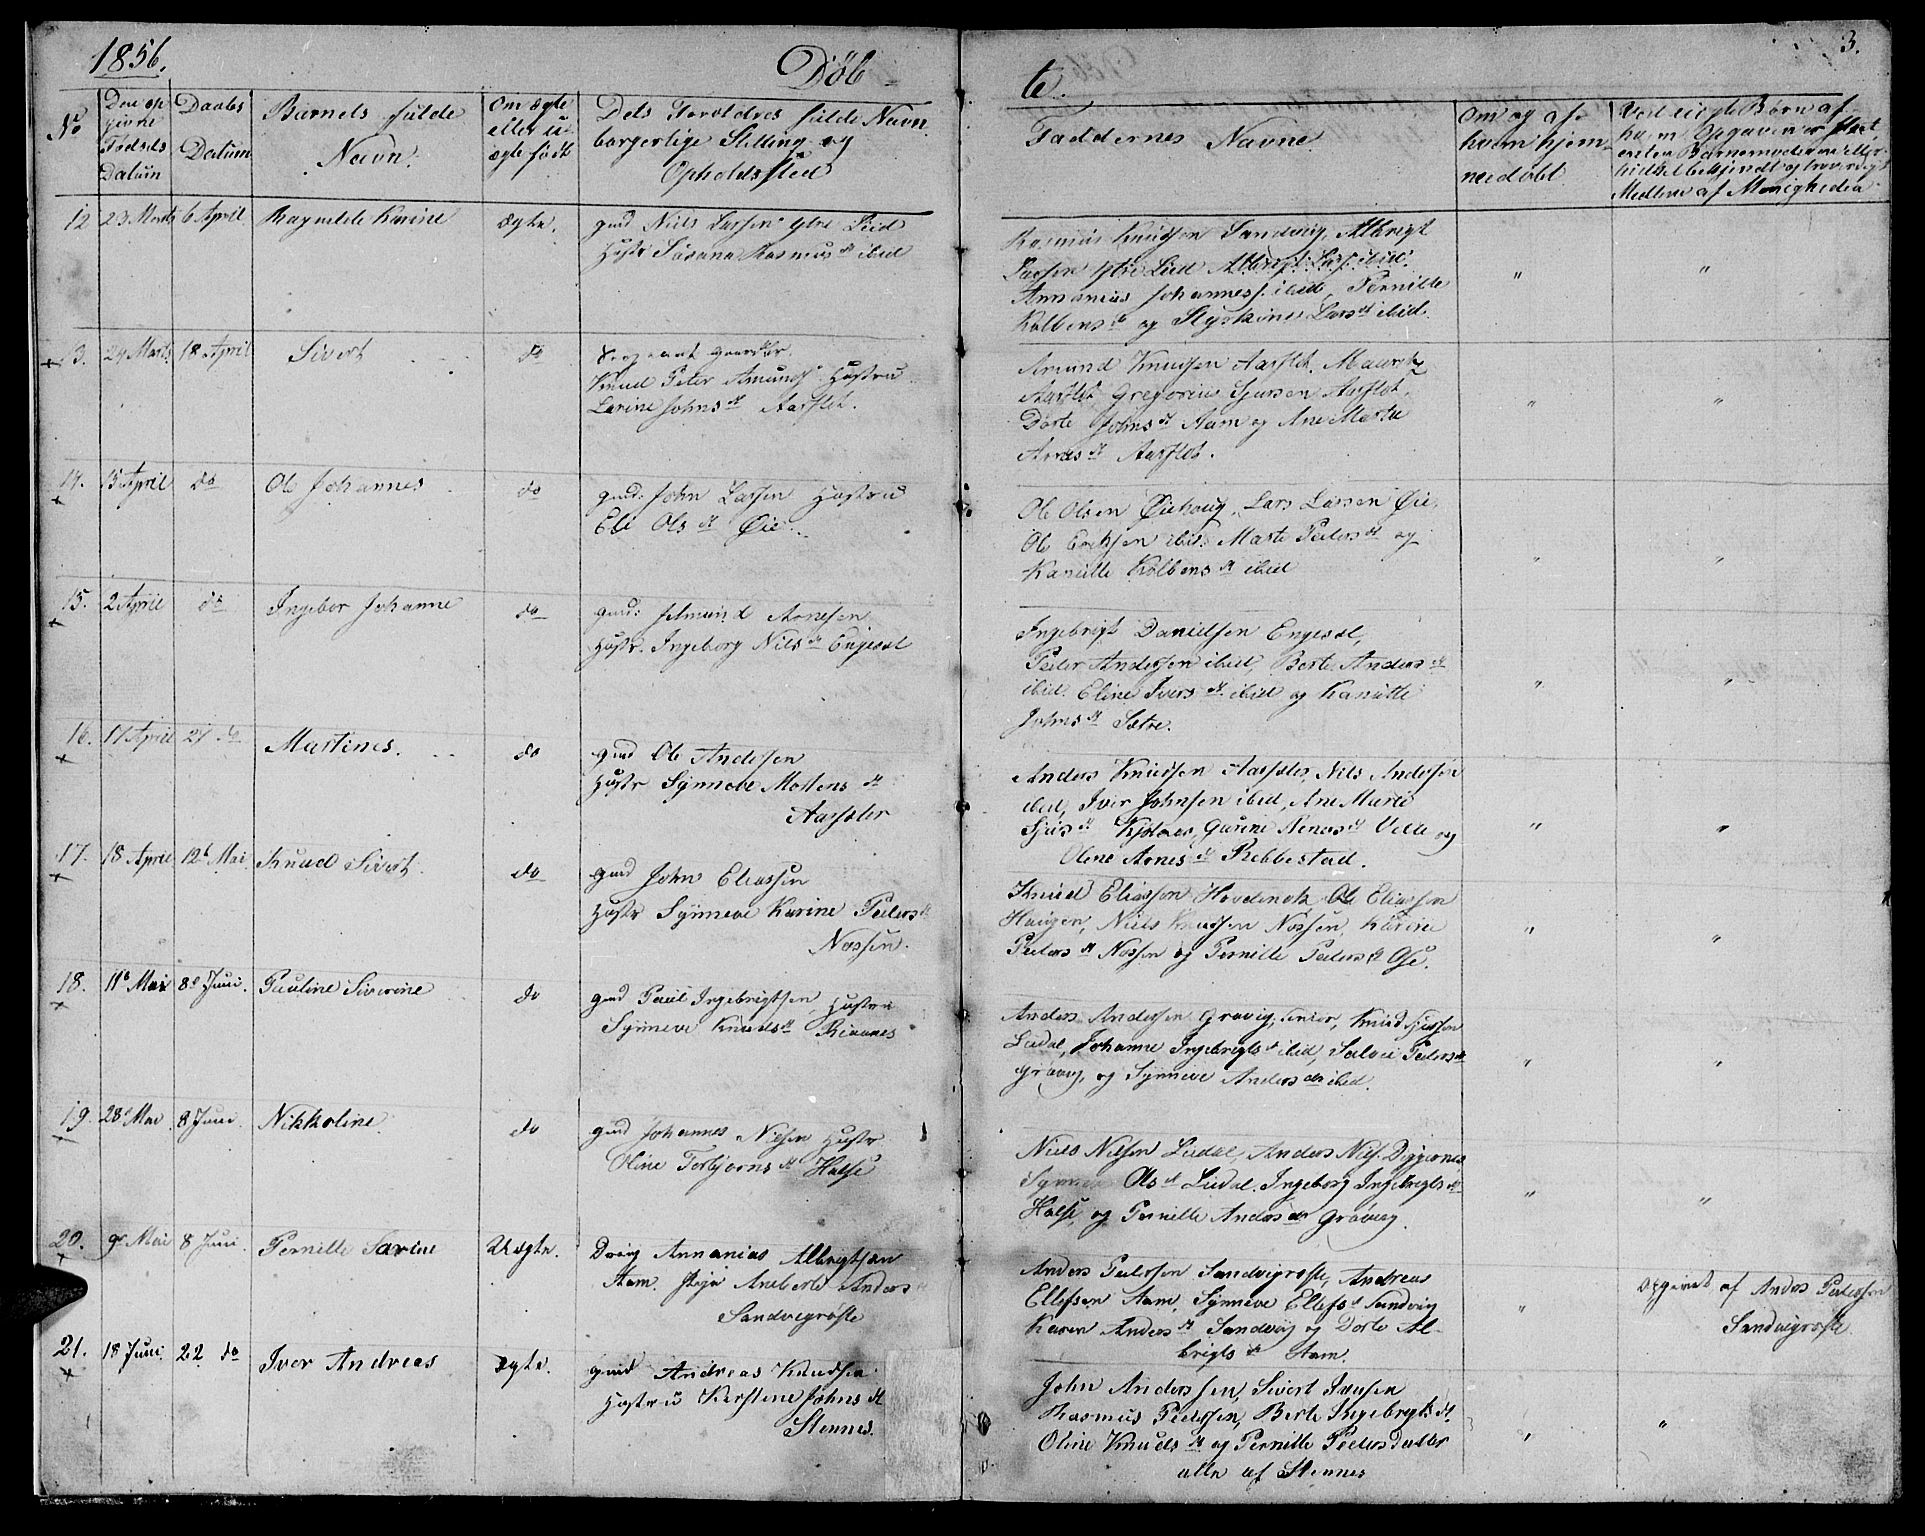 1856.
Døb
te.
3.
No
Den op
givne
Fødsels
Datum
Daabs
Datum
Barnets fulde
Navn.
Om ægte
eller u
ægte født
Dets Forældres fulde Navn.
borgerlige Stilling og
Opholdssted
Faddernes Navne.
Om og af
hvem hjem
medøbt
Ved uægte Børn af
hvem Opgaven er skeet,
enten Barnemoderen eller
hidsel bekjendt og troværdigt
Medlem af Menigheden
12 23 Marts 6 April Ragnilde Karine ægte. gmd Niels Larsen ytre Lied
Hustr Susana Rasmusdt ibid
Rasmus Knudsen Sandvig, Albrigt
Larsen ytre Lied Albrigt Lars. ibid.
Annanias Johannes. ibid, Pernille
Kolbensdt og Larsdt ibid.
" "
3. 24 Marts 18 April Sivert do
Knud Peter Amunds. Hustru
Larine Johnsdt Aarflot.
Amund Knudsen Aarflot. Mauritz
Aarflot, Gregorius Sjursen Aarflot.
Dorte Johnsdt Aam og Ane Marta
Arnesdt Aarflot.
" "
14. 13 April do Ole Johannes do gmd: John Larsen Hustru
Eli Olsdt Øie.
Ole Olsen Øiehoug, Lars Larsen Øie,
Ole Eriksen ibid. Marte Pedersdt og
Kanutte Kolbensdt ibid
" "
15. 2 April do Ingebor Johanne do gmd: Amund Arnesen
Hustr. Ingeborg Nilsdt Engeset
Ingebrigt Danielsen Engeset,
Peder Andersen ibid, Berte Andersdt
ibid. Eline Iversdt ibid og Kanutte
Johnsdt Sætre.
" "
16. 17 April 27 do Martines. do gmd Ole Andersen
Hustr Synneve Mortensdt
Aarsæter
Anders Knudsen Aarsæter, Nils Andersen
ibid, Iver Johnsen ibid, Ane Marte
Sjursdt Kjølaas, Gurine dt Velle og
Oline Arnesdt Rebbestad.
" "
17. 18 April 12t Mai Knud Sivert. do gmd John Eliassen
Hustr Synneve Karine Pedersdt
Nossen.
Knud Eliassen Hovdenak, Ole Eliassen
Haugen, Niels Knudsen Nossen, Karine
Pedersdt Nossen og Pernille Pedersdt Ose.
" "
18. 11t Mai 8d Juni. Pauline Siverine do gmd Paul Ingebrigtsen, Hustru
Synneve Knudsdt Riunnes
Anders Andersen Grøvig, senior, Knud Sjursen
Liadal, Johanne Ingebrigtsdt ibid, Salvei Pedersdt
Grøvig, og Synneve Andersdtr ibid.
" "
19. 28d Mai 8 Juni. Nikkoline do gmd Johannes Nilsen Hustr
Oline Torbjørnsdt Halse
Niels Nilsen Liadal, Anders Nils. Digernes
Synneve Olsdt Liadal. Ingeborg Ingebrigtsdt
Halse, og Pernille Andersdtr Grøvig.
" "
20. 9de Mai 8 Juni. Pernille Sarine Uægte. Dreng Annanias Albrigtsen
Aam. Pige Aneberte Andersdt
Sandvigrøste
Anders Pedersen Sandvigrøste, Andreas
Ellefsen Aam, Synneve Ellefsdt Sandvig
Karen Andersdt Sandvig og Dorte Al-
brigtsdtr Aam.
" opgivet af Anders Pedersen
Sandvigrøste.
21. 18 Juni. 22 do Iver Andreas ægte. gmd Andreas Knudsen
Hustru Kirstine Johnsdt
Stennes.
John Anderssen, Sivert Iversen
Rasmus Pedersen, Berte Ingebrigtsdt.
Oline Knudsdt og Pernille Pedersdatter
alle af Stennes
" "